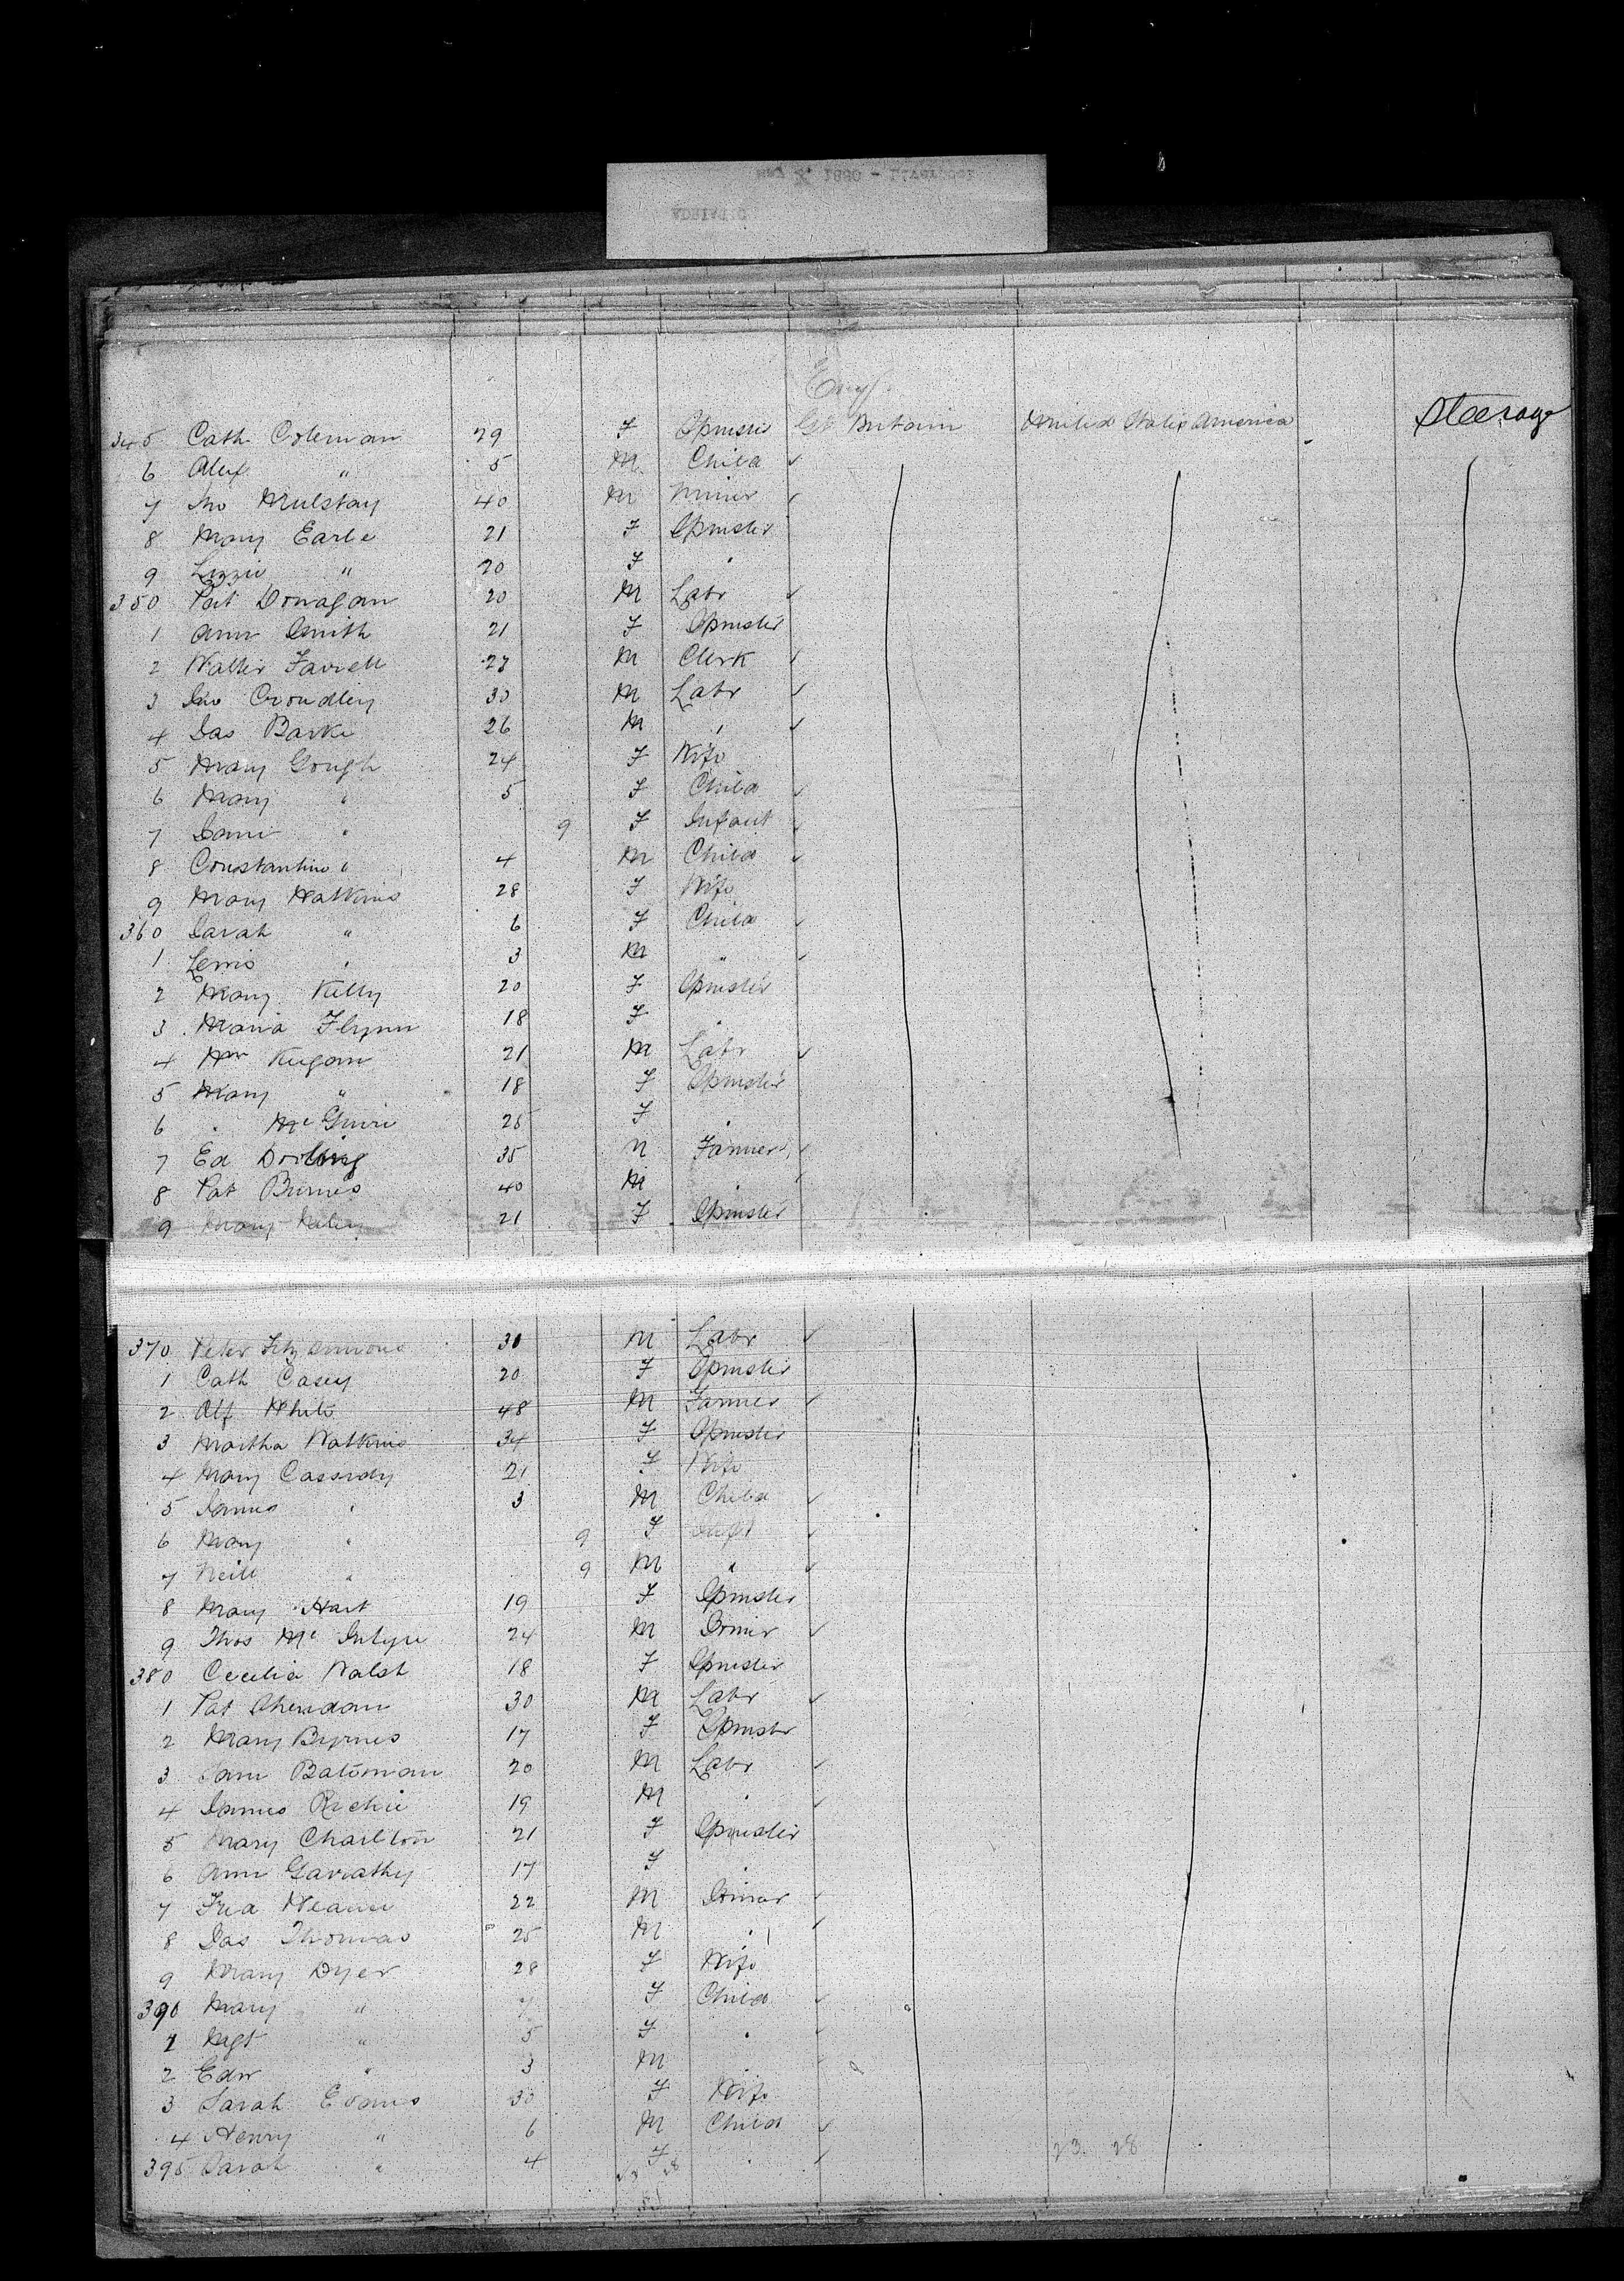 Engl.
345 Cath Coleman 29 F Spinster Gt Britain United States America Steerage
6 Alex " 5 M Child
7 Jno 40 M Miner
8 Mary Earle 21 F Spinster
9 Lizzie " 20 F "
350 Pat Donagan 20 M Labr
1 Ann Smith 21 F Spinster
2 Walter Farrell 27 M Clerk
3 Jno Croudley 30 M Labr
4 Jas Barke 26 M "
5 Mary Gough 24 F Wife
6 Mary " 5 F Child
7 " 9 F Infant
8 Constantine " 4 M Child
9 Mary Watkins 28 F Wife
360 Sarah " 6 F Child
1 Lewis " 3 M "
2 Mary Kelly 20 F Spinster
3 Maria Flynn 18 F "
4 Wm Keegan 21 M Labr
5 Mary " 18 F Spinster
6 " McGuire 25 F "
7 Ed Dooling 35 M Farmer
8 Pat Burnes 40 M "
9 Mary 21 F Spinster
370 Peter Fitzsimons 30 M Labr
1 Cath Casey 20 F Spinster
2 Alf White 48 M Farmer
3 Martha Watkins 34 F Spinster
4 Mary Cassidy 21 F Wife
5 James " 3 M Child
6 Mary " 9 F Inft
7 Neill " 9 M "
8 Mary Hart 19 F Spinster
9 Thos McIntyre 24 M Joiner
380 Cecelia Walsh 18 F Spinster
1 Pat Sheridan 30 M Labr
2 Mary Byrnes 17 F Spinster
3 Sam Bateman 20 M Labr
4 James Richie 19 M "
5 Mary Charlton 21 F Spinster
6 Ann Garrathy 17 F "
7 Fred 22 M Joiner
8 Jas Thomas 25 M "
9 Mary Dyer 28 F Wife
390 Mary " 7 F Child
1 Mgt " 5 F "
2 Edw " 3 M "
3 Sarah Evans 30 F Wife
4 Henry " 6 M Child
395 Sarah " 4 F "
23 28